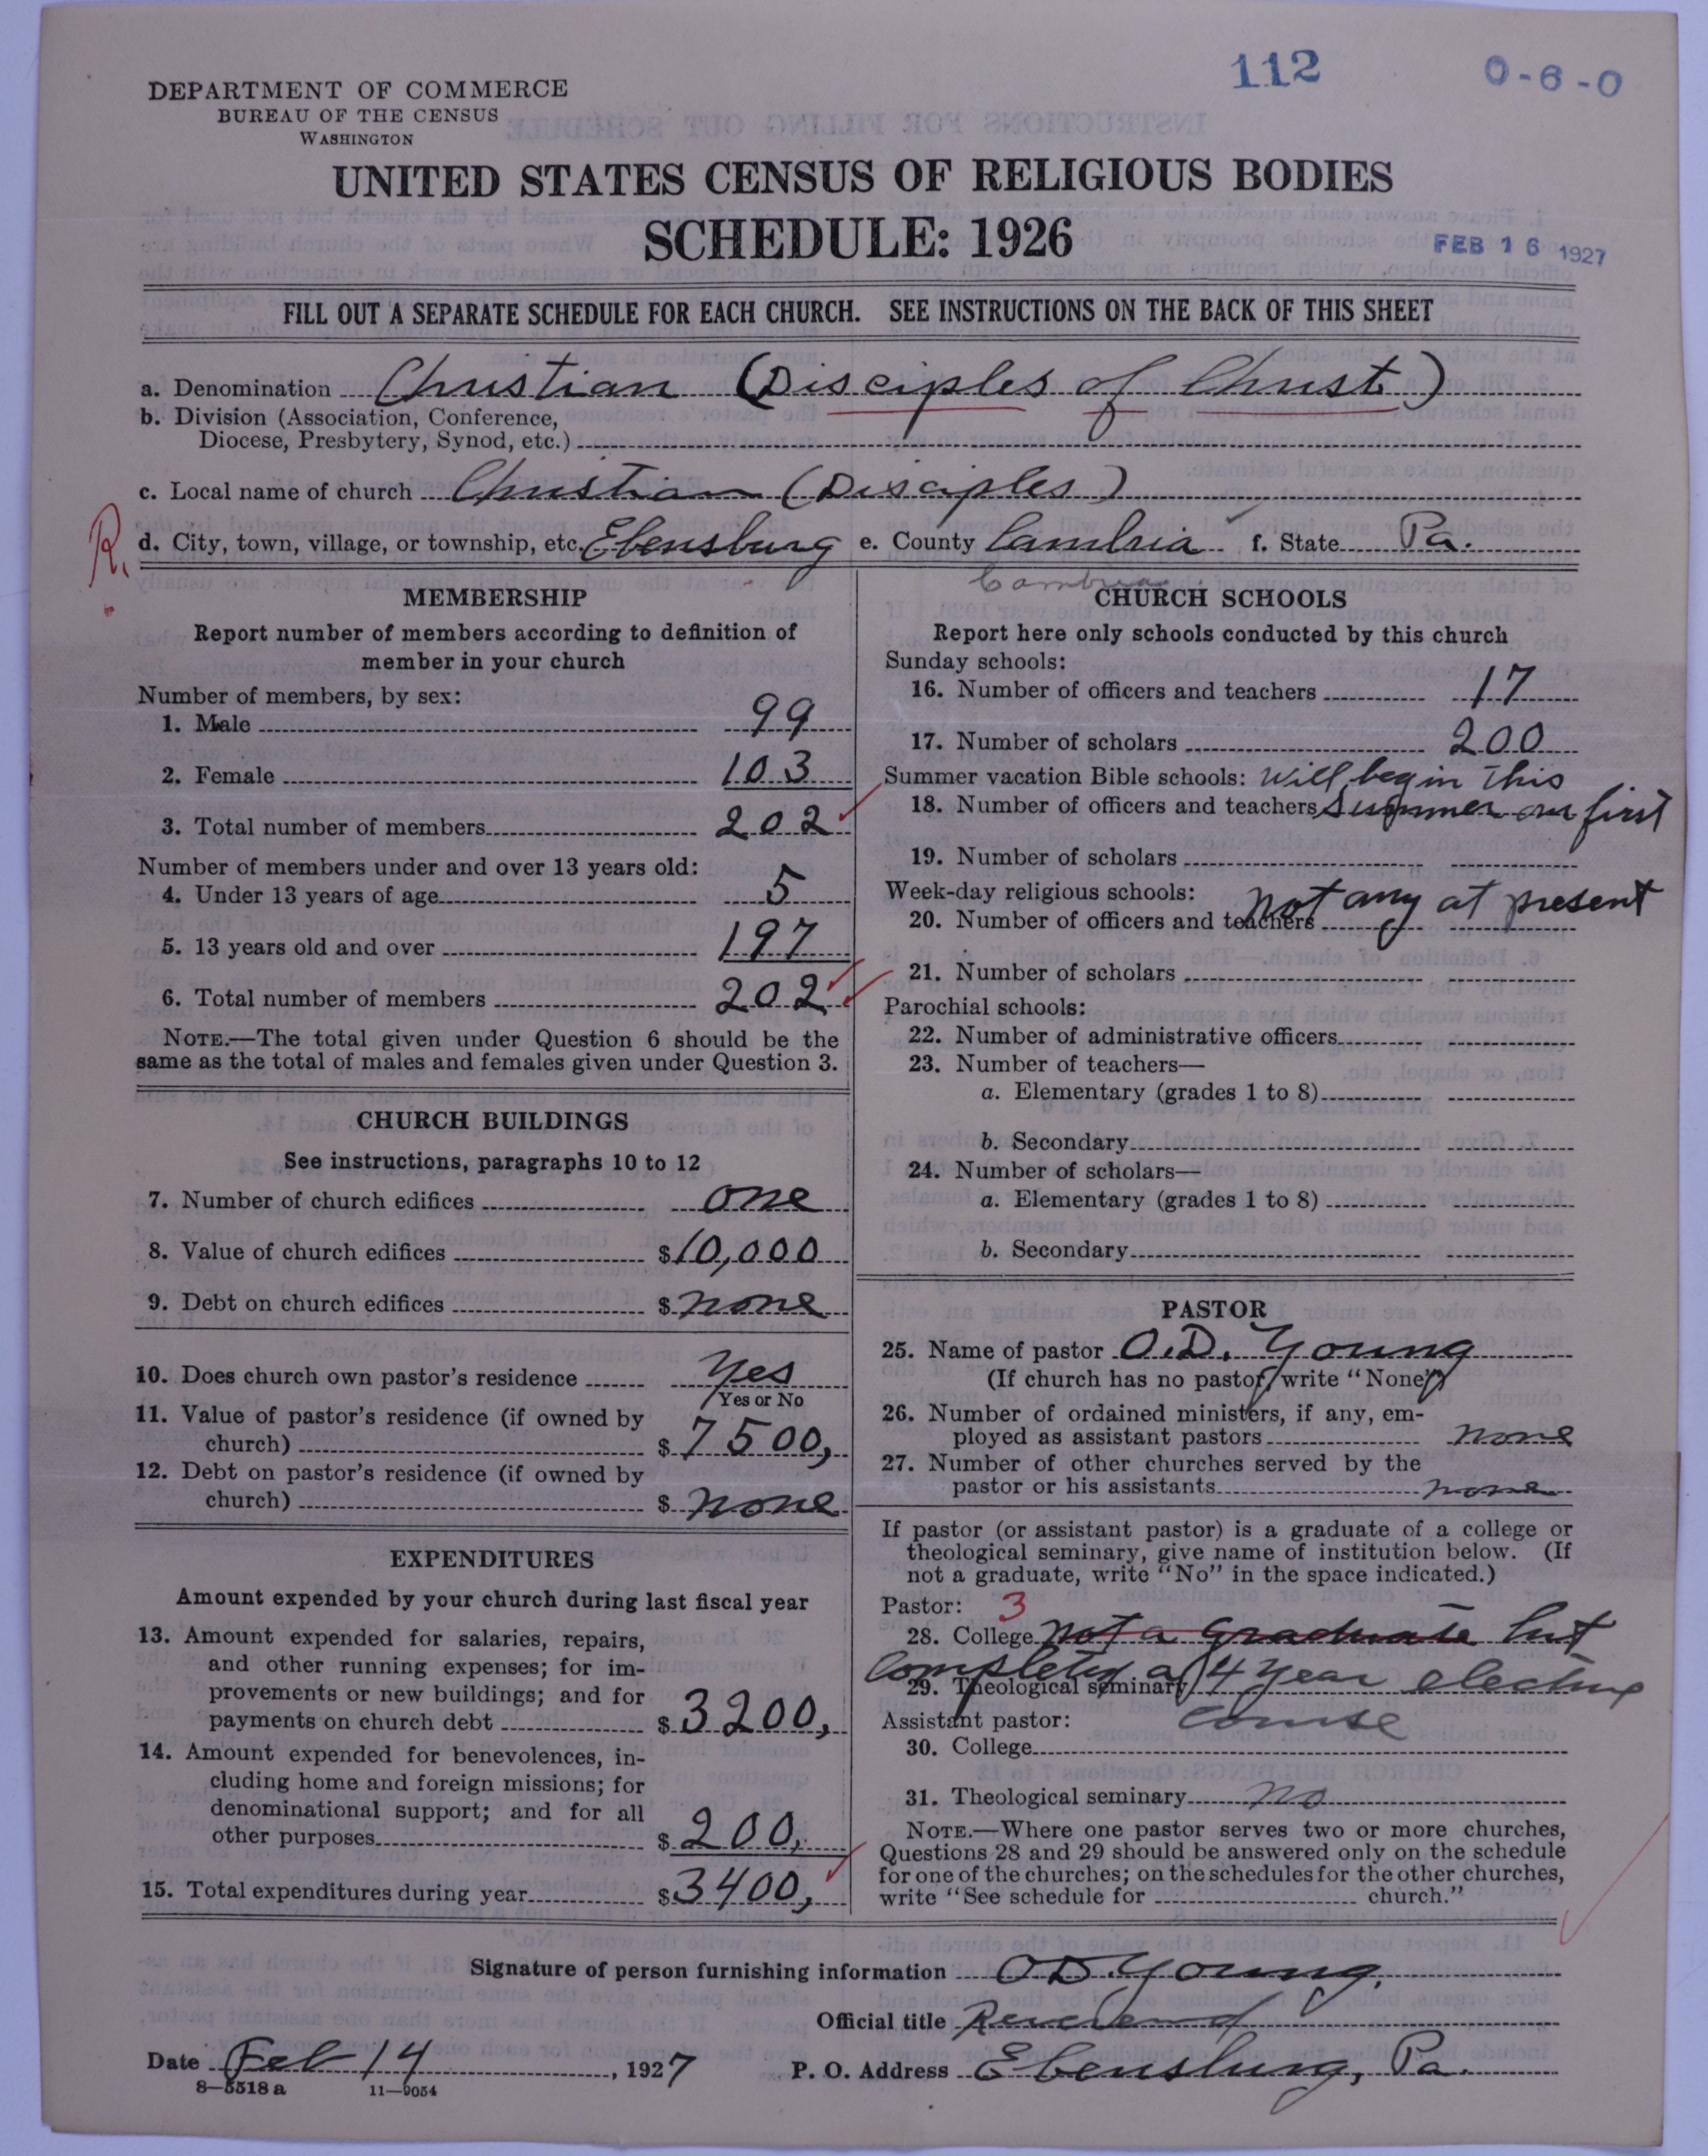 112
0-6-0
DEPARTMENT OF COMMERCE
BUREAU OF THE CENSUS
WASHINGTON
UNITED STATES CENSUS OF RELIGIOUS BODIES
SCHEDULE: 1926
FEB 16 1927
FILL OUT A SEPARATE SCHEDULE FOR EACH CHURCH. SEE INSTRUCTIONS ON THE BACK OF THIS SHEET
a. Denomination Christian (Disciples of Christ)
b. Division (Association, Conference,
Diocese, Presbytery, Synod, etc.)
c. Local name of church Christian (Disciples)
R.
d. City, town, village, or township, etc. Ebensburg e. County Cambria f. State Pa.
Cambria
MEMBERSHIP
Report number of members according to definition of
member in your church
Number of members, by sex:
1. Male 99
2. Female 103
3. Total number of members 202
Number of members under and over 13 years old:
4. Under 13 years of age 5
5. 13 years old and over 197
6. Total number of members 202
NOTE.—The total given under Question 6 should be the
same as the total of males and females given under Question 3.
CHURCH BUILDINGS
See instructions, paragraphs 10 to 12
7. Number of church edifices one
8. Value of church edifices $10,000
9. Debt on church edifices $ none
10. Does church own pastor's residence Yes
Yes or No
11. Value of pastor's residence (if owned by
church) $7500,
12. Debt on pastor's residence (if owned by
church) $ none
EXPENDITURES
Amount expended by your church during last fiscal year
13. Amount expended for salaries, repairs,
and other running expenses; for im-
provements or new buildings; and for
payments on church debt $3200,
14. Amount expended for benevolences, in-
cluding home and foreign missions; for
denominational support; and for all
other purposes $200,
15. Total expenditures during year $3400,
CHURCH SCHOOLS
Report here only schools conducted by this church
Sunday schools:
16. Number of officers and teachers 17
17. Number of scholars 200
Summer vacation Bible schools: will begin this
18. Number of officers and teachers summer our first
19. Number of scholars
Week-day religious schools: not any at present
20. Number of officers and teachers
21. Number of scholars
Parochial schools:
22. Number of administrative officers
23. Number of teachers—
a. Elementary (grades 1 to 8)
b. Secondary
24. Number of scholars—
a. Elementary (grades 1 to 8)
b. Secondary
PASTOR
25. Name of pastor O.D. Young
(If church has no pastor, write "None")
26. Number of ordained ministers, if any, em-
ployed as assistant pastors none
27. Number of other churches served by the
pastor or his assistants none
If pastor (or assistant pastor) is a graduate of a college or
theological seminary, give name of institution below. (If
not a graduate, write "No" in the space indicated.)
Pastor: 3
28. College not a graduate but
completed a 4 year elective
29. Theological seminary
course
Assistant pastor:
30. College
31. Theological seminary no
NOTE.—Where one pastor serves two or more churches,
Questions 28 and 29 should be answered only on the schedule
for one of the churches; on the schedules for the other churches,
write "See schedule for church."
Signature of person furnishing information O D. Young.
Official title Reverend
Date Feb 14, 1927 P. O. Address Ebensburg, Pa.
8—5518 a 11—9054